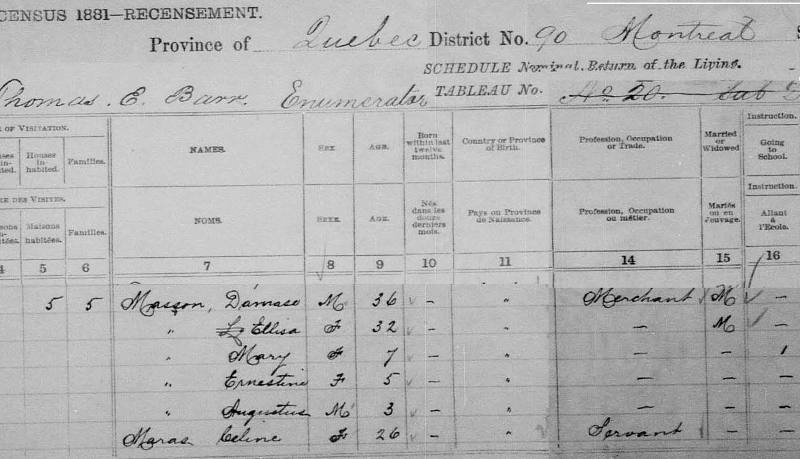 CENSUS 1881—RECENSEMENT.
Province of Quebec District No. 90 Montreal
SCHEDULE Nominal Return of the Living.
Thomas E. Barr Enumerator TABLEAU No. No 20.
OF VISITATION. NAMES. SEX. AGE. Born within last twelve months. Country or Province of Birth. Profession, Occupation or Trade. Married or Widowed Instruction. Going to School.
Houses in-habited. Families.
DES VISITES. NOMS. SEXE. AGE. Nés dans les douze derniers mois. Pays ou Province de Naissance. Profession, Occupation ou métier. Mariés ou en veuvage. Instruction. Allant à l'Ecole.
Maisons habitées. Familles.
4 5 6 7 8 9 10 11 14 15 16
5 5 Masson, Damase M 36 – " Merchant M –
" Ellisa F 32 – " – M –
" Mary F 7 – " – – 1
" Ernestine F 5 – " – – –
" Augustus M 3 – " – – –
Maras Celine F 26 – " Servant – –